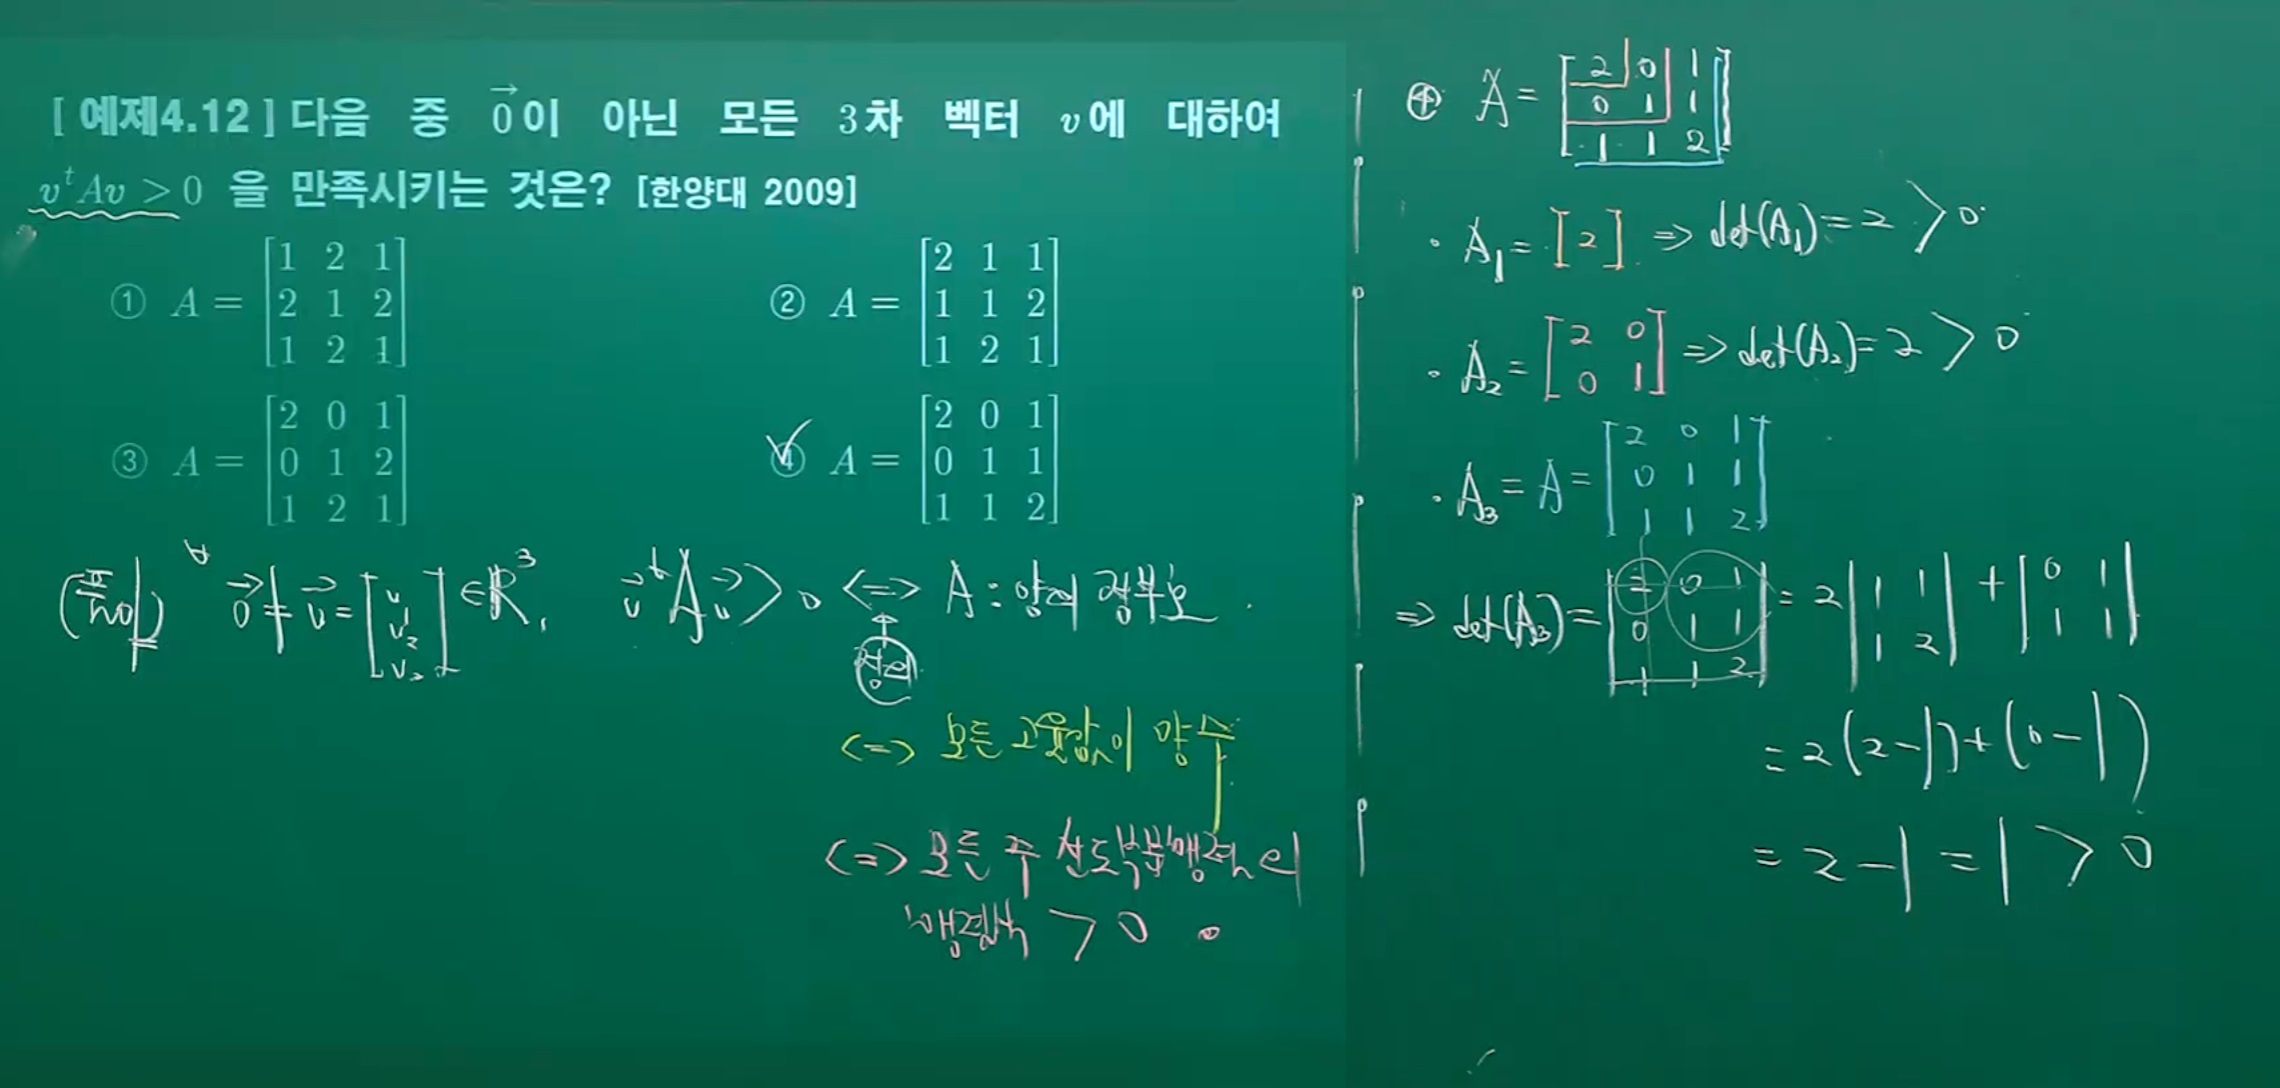 [ 예제4.12 ] 다음 중 $\vec{0}$이 아닌 모든 3차 벡터 v에 대하여
$v^t A v > 0$ 을 만족시키는 것은? [한양대 2009]
① A = [1 2 1; 2 1 2; 1 2 1]
② A = [2 1 1; 1 1 2; 1 2 1]
③ A = [2 0 1; 0 1 2; 1 2 1]
④ A = [2 0 1; 0 1 1; 1 1 2]
(풀이) ∀ $\vec{0} ≠ \vec{v}$ = [v₁ v₂ v₃] ∈ R³, $\vec{v}^t A \vec{v} > 0$ <=> A : 양의 정부호.
정의
<=> 모든 고윳값이 양수
<=> 모든 주 선도부분행렬의
행렬식 > 0 .
④ A = [2 0 1; 0 1 1; 1 1 2]
· A₁ = [2] => det(A₁) = 2 > 0.
· A₂ = [2 0; 0 1] => det(A₂) = 2 > 0
· A₃ = A = [2 0 1; 0 1 1; 1 1 2]
=> det(A₃) = |2 0 1; 0 1 1; 1 1 2| = 2|1 1; 1 2| + |0 1; 1 1|
= 2(2-1) + (0-1)
= 2 - 1 = 1 > 0